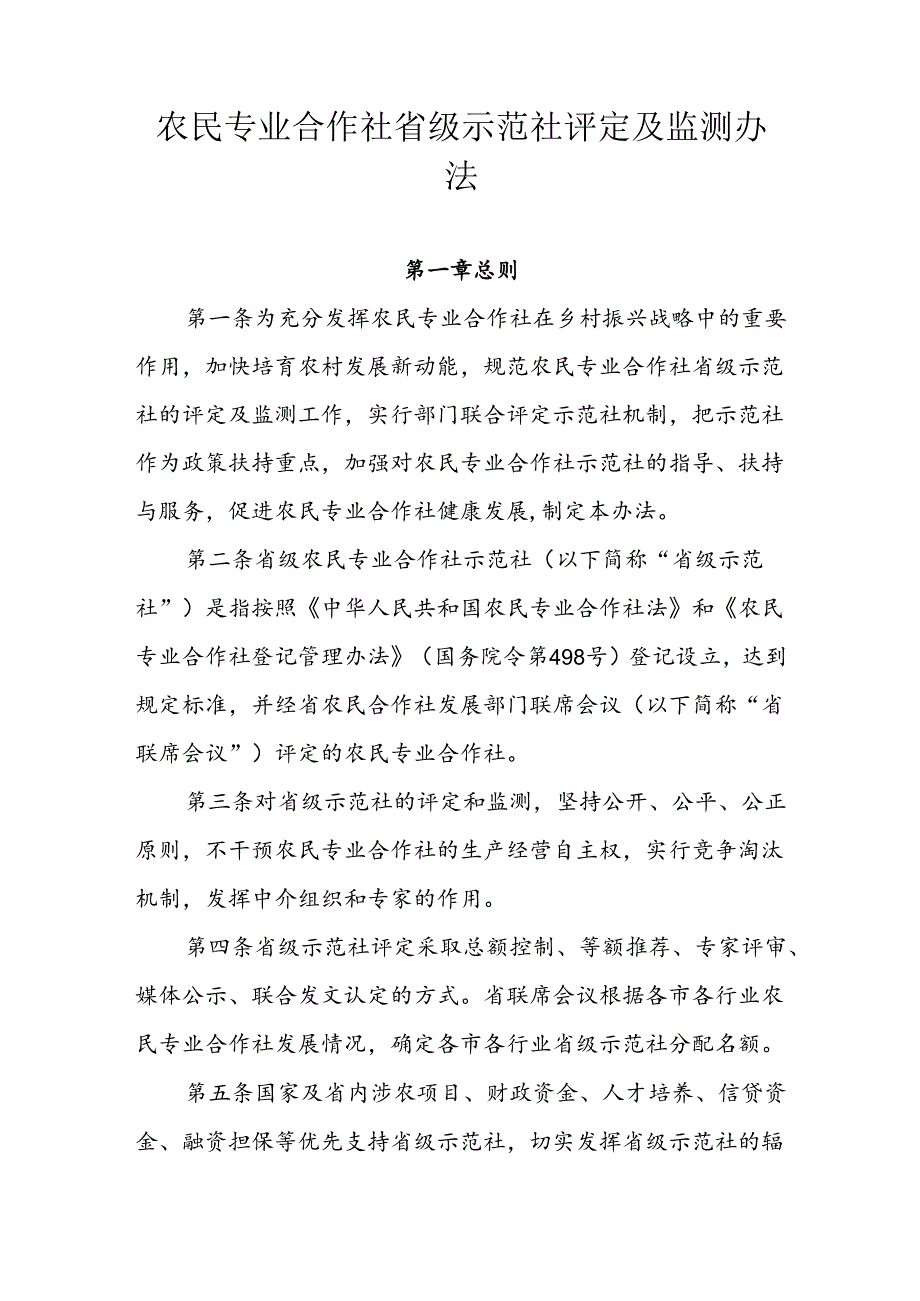 农民专业合作社省级示范社评定及监测办
法
第一章总则
第一条为充分发挥农民专业合作社在乡村振兴战略中的重要
作用，加快培育农村发展新动能，规范农民专业合作社省级示范
社的评定及监测工作，实行部门联合评定示范社机制，把示范社
作为政策扶持重点，加强对农民专业合作社示范社的指导、扶持
与服务，促进农民专业合作社健康发展,制定本办法。
第二条省级农民专业合作社示范社（以下简称“省级示范
社”）是指按照《中华人民共和国农民专业合作社法》和《农民
专业合作社登记管理办法》（国务院令第498号）登记设立，达到
规定标准，并经省农民合作社发展部门联席会议（以下简称“省
联席会议”）评定的农民专业合作社。
第三条对省级示范社的评定和监测，坚持公开、公平、公正
原则，不干预农民专业合作社的生产经营自主权，实行竞争淘汰
机制，发挥中介组织和专家的作用。
第四条省级示范社评定采取总额控制、等额推荐、专家评审、
媒体公示、联合发文认定的方式。省联席会议根据各市各行业农
民专业合作社发展情况，确定各市各行业省级示范社分配名额。
第五条国家及省内涉农项目、财政资金、人才培养、信贷资
金、融资担保等优先支持省级示范社，切实发挥省级示范社的辐